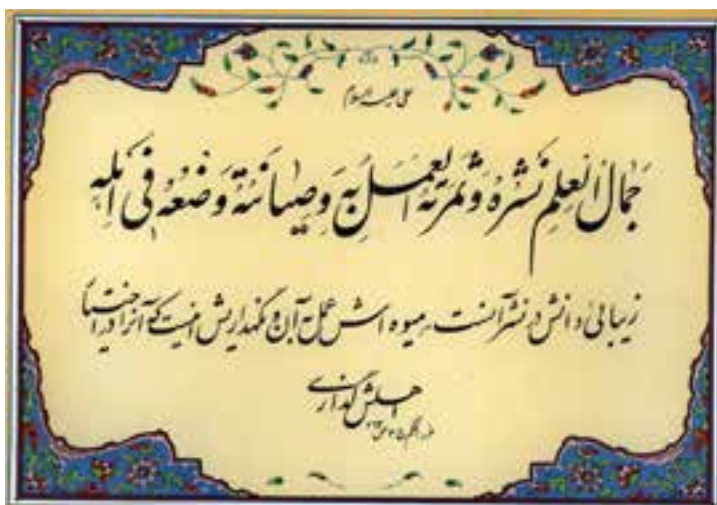 علی علیه السلام
جَمالُ الْعِلْمِ نَشْرُهُ وَ ثَمَرَتُهُ الْعَمَلُ بِهِ وَ صِیانَتُهُ وَضْعُهُ فی اَهْلِهِ
زیبائی دانش در نشر آنست، میوه اش عمل به آن و نگهداریش اینست که آنرا در اختیار
اهلش گذاری